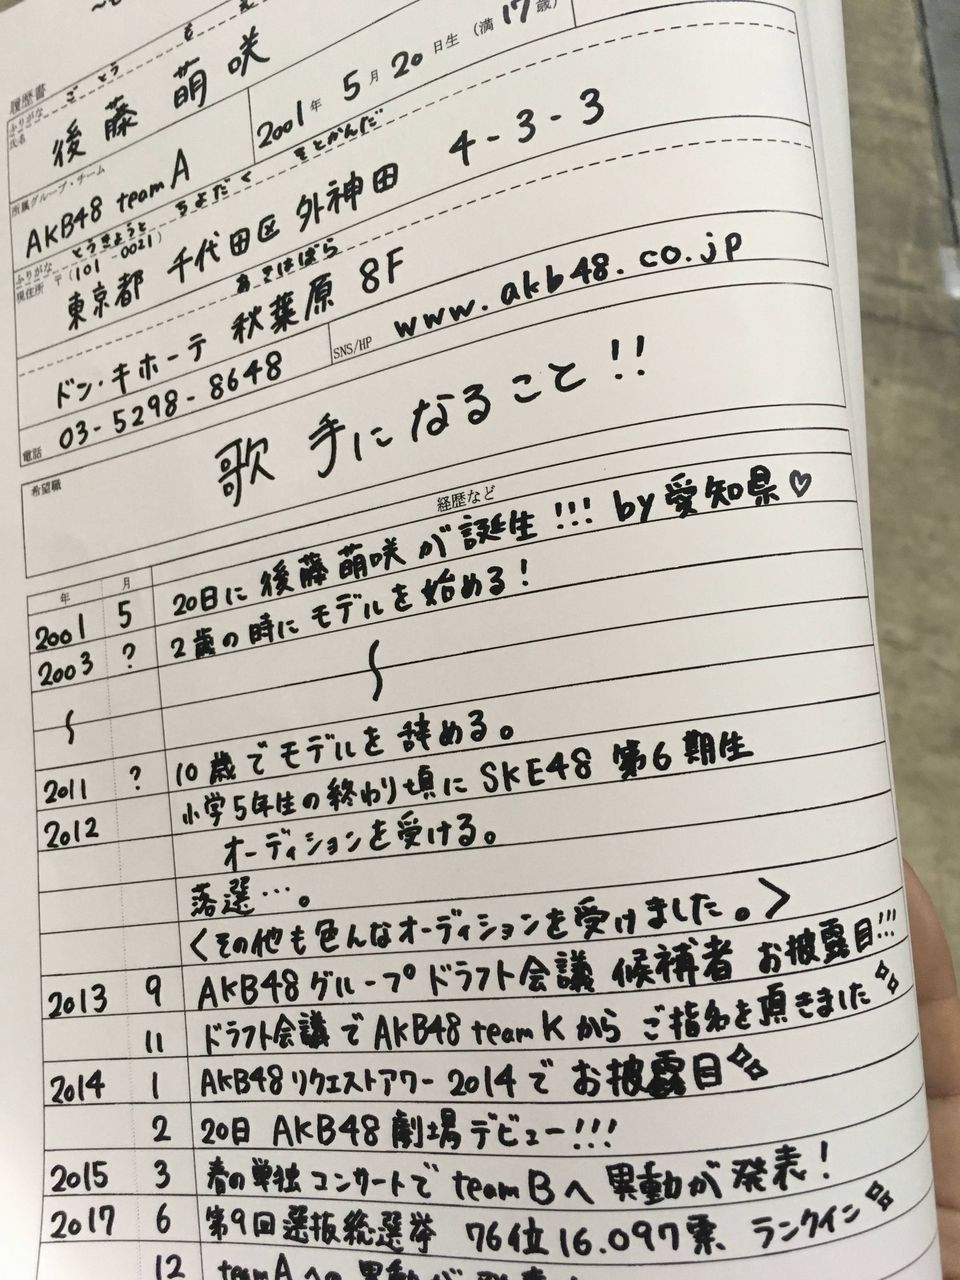 履歴書
ふりがな ごとう も え
氏名
後藤 萌咲
2001年 5月 20日生 (満 17歳)
所属グループ・チーム
AKB48 team A
ふりがな とうきょうと ちよだく そとかんだ
現住所 〒(101 0021)
東京都 千代田区 外神田 4-3-3
あきはばら
ドン・キホーテ 秋葉原 8F
電話 03-5298-8648
SNS/HP www.akb48.co.jp
希望職
歌手になること!!
経歴など
年 月
2001 5 20日に後藤萌咲が誕生!!! by愛知県♡
2003 ? 2歳の時にモデルを始める!
〜 〜
2011 ? 10歳でモデルを辞める。
2012 小学5年生の終わり頃にSKE48 第6期生
オーディションを受ける。
落選…。
<その他も色んなオーディションを受けました。>
2013 9 AKB48グループドラフト会議 候補者 お披露目!!!
11 ドラフト会議でAKB48 teamKからご指名を頂きました
2014 1 AKB48リクエストアワー2014でお披露目
2 20日 AKB48劇場デビュー!!!
2015 3 春の単独コンサートで teamBへ異動が発表!
2017 6 第9回選抜総選挙 76位16.097票 ランクイン
12 teamAへの異動が発表!